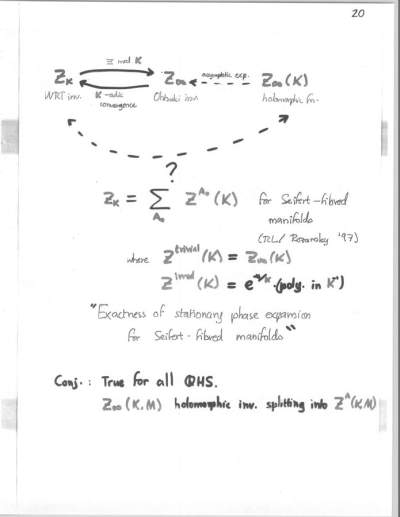 20
≡ mod K
Z_K Z_∞ asymptotic exp. Z_∞(K)
WRT inv. K-adic convergence Ohtsuki inv. holomorphic fn.
?
Z_K = Σ_{A_0} Z^{A_0}(K) for Seifert-fibred
manifolds
(RL/ Rozansky '97)
where Z^{trivial}(K) = Z_∞(K)
Z^{irred}(K) = (poly. in
"Exactness of stationary phase expansion
for Seifert-fibred manifolds"
Conj.: True for all QHS.
Z_∞(K,M) holomorphic inv. splitting into Z^A(K,M)